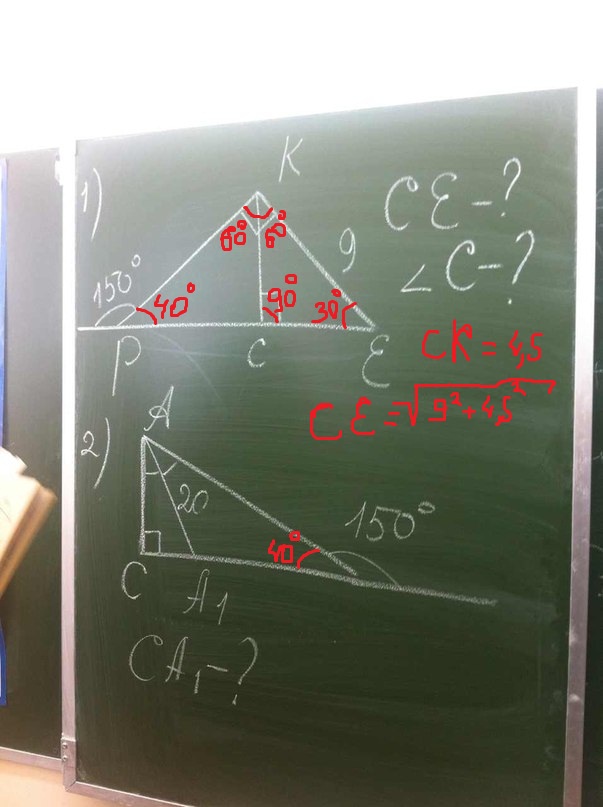 1)
K
CE-?
60° 60°
9
∠C-?
150°
40° 90° 30°
P C E
CK = 4,5
CE = √9² + 4,5²
2)
A
20
150°
40°
C A₁
CA₁-?